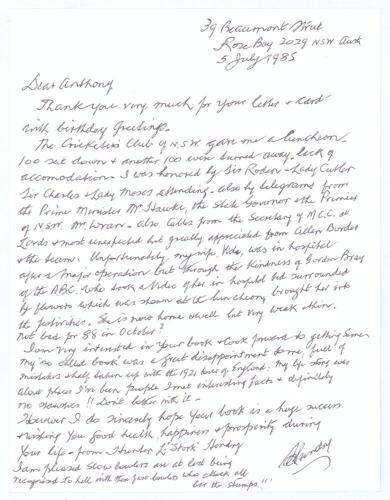 39 Beaumont Street
Rose Bay 2029 NSW Aust
5 July 1985
Dear Anthony
Thank you very much for your letter & card
with birthday Greetings.
The Cricketers Club of N.S.W. gave me a luncheon.
100 sat down & another 100 were turned away, lack of
accomodation. I was honored by Sir Roden & Lady Cutler
Sir Charles & Lady Moses attending. also by telegrams from
the Prime Minister Mr Hawke, the State Governor & the Premier
of N.S.W. Mr Wran. Also Cables from the Secretary of M.C.C. at
Lords & most unexpected but greatly appreciated from Allan Border
& the team. Unfortunately, my wife, Vida, was in hospital
after a major operation but through the kindness of Gordon Bray
of the ABC. who took a Video of her in hospital bed surrounded
by flowers which was shown at the luncheon, brought her into
the festivities. She is now home & well but very weak & thin.
Not bad for 88 in October?
I am very interested in your book & look forward to getting same.
My 'so called book' was a great disappointment to me, 'full' of
mistakes & half taken up with the 1921 tour of England. My life story was
about places I've been, people I met interesting facts & definitely
no statistics!! Don't bother with it -
However I do sincerely hope your book is a huge success
& wishing You good health, happiness & prosperity during
Your life - from Hunter L 'Stork' Hendry
I am pleased slow bowlers are at last being
recognised to hell with these fast bowlers who chuck all
for the stumps!!!